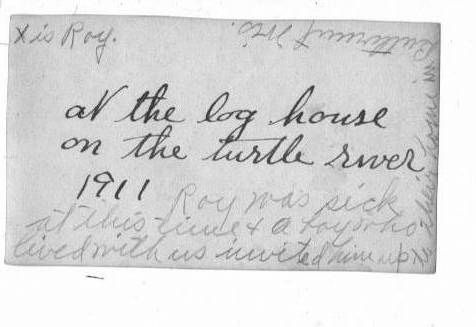 X is Roy.
at the log house
on the turtle river
1911
Roy was sick
at this time & a boy who
lived with us invited him up
to their home in
Butternut Wis.